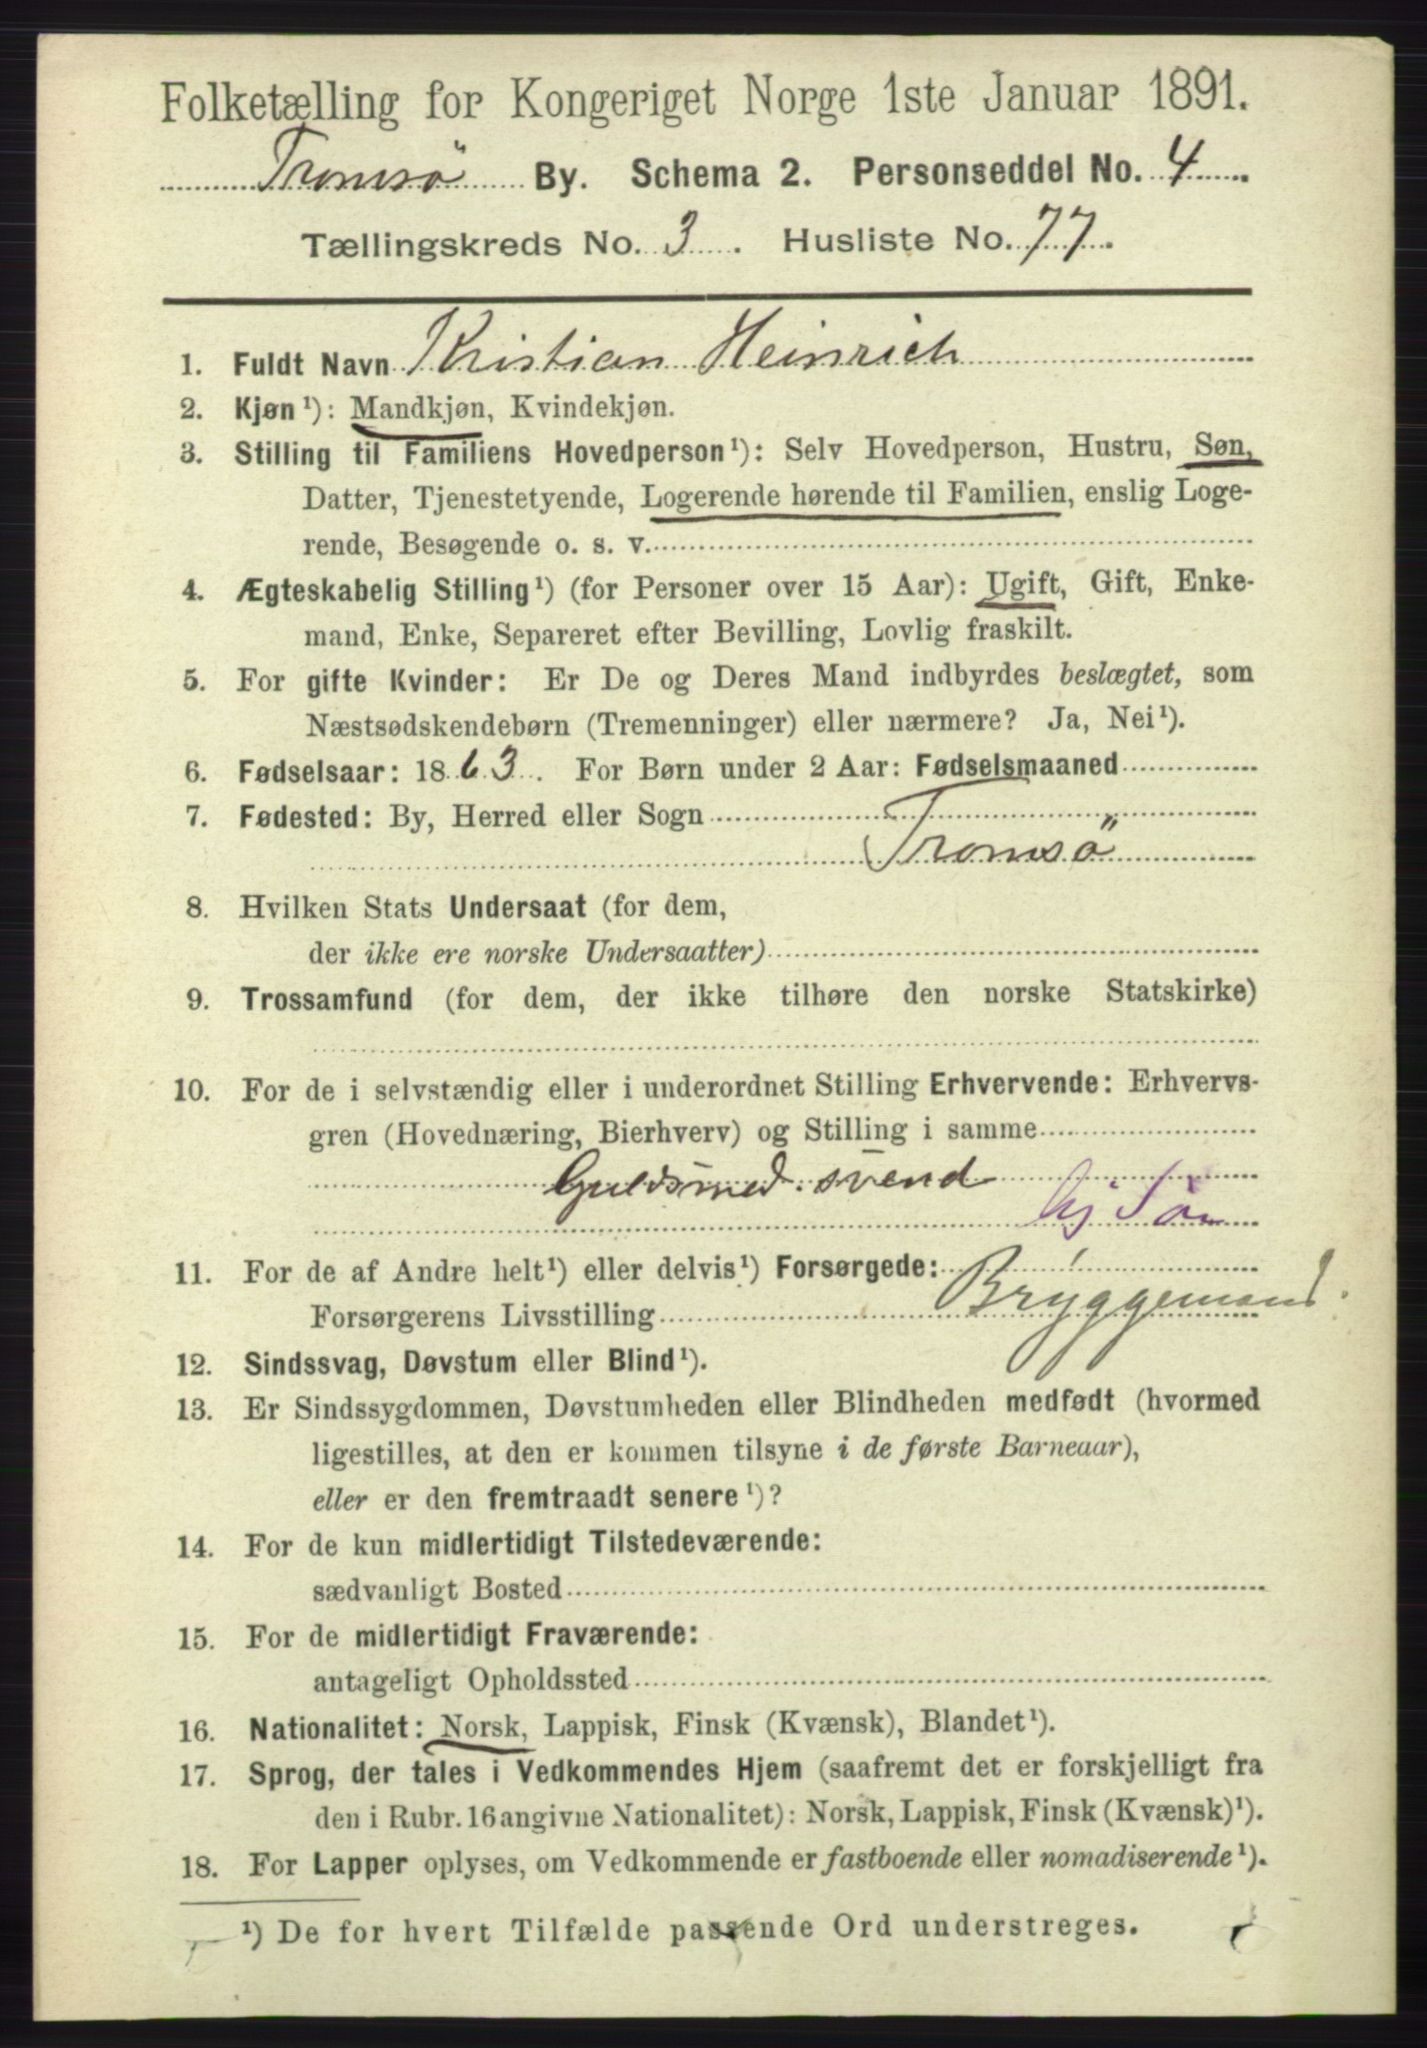 Folketælling for Kongeriget Norge 1ste Januar 1891.
Tromsö By. Schema 2. Personseddel No. 4
Tællingskreds No. 3. Husliste No. 77.
1. Fuldt Navn Kristian Heinrich
2. Kjøn¹): Mandkjøn, Kvindekjøn.
3. Stilling til Familiens Hovedperson¹): Selv Hovedperson, Hustru, Søn,
Datter, Tjenestetyende, Logerende hørende til Familien, enslig Loge-
rende, Besøgende o. s. v.
4. Ægteskabelig Stilling¹) (for Personer over 15 Aar): Ugift, Gift, Enke-
mand, Enke, Separeret efter Bevilling, Lovlig fraskilt.
5. For gifte Kvinder: Er De og Deres Mand indbyrdes beslægtet, som
Næstsødskendebørn (Tremenninger) eller nærmere? Ja, Nei¹).
6. Fødselsaar: 1863. For Børn under 2 Aar: Fødselsmaaned
7. Fødested: By, Herred eller Sogn
Tromsö
8. Hvilken Stats Undersaat (for dem,
der ikke ere norske Undersaatter)
9. Trossamfund (for dem, der ikke tilhøre den norske Statskirke)
10. For de i selvstændig eller i underordnet Stilling Erhvervende: Erhvervs-
gren (Hovednæring, Bierhverv) og Stilling i samme
Guldsmed svend
11. For de af Andre helt¹) eller delvis¹) Forsørgede:
Forsørgerens Livsstilling Bryggemand.
12. Sindssvag, Døvstum eller Blind¹).
13. Er Sindssygdommen, Døvstumheden eller Blindheden medfødt (hvormed
ligestilles, at den er kommen tilsyne i de første Barneaar),
eller er den fremtraadt senere¹)?
14. For de kun midlertidigt Tilstedeværende:
sædvanligt Bosted
15. For de midlertidigt Fraværende:
antageligt Opholdssted
16. Nationalitet: Norsk, Lappisk, Finsk (Kvænsk), Blandet¹).
17. Sprog, der tales i Vedkommendes Hjem (saafremt det er forskjelligt fra
den i Rubr. 16 angivne Nationalitet): Norsk, Lappisk, Finsk (Kvænsk)¹).
18. For Lapper oplyses, om Vedkommende er fastboende eller nomadiserende¹).
¹) De for hvert Tilfælde passende Ord understreges.